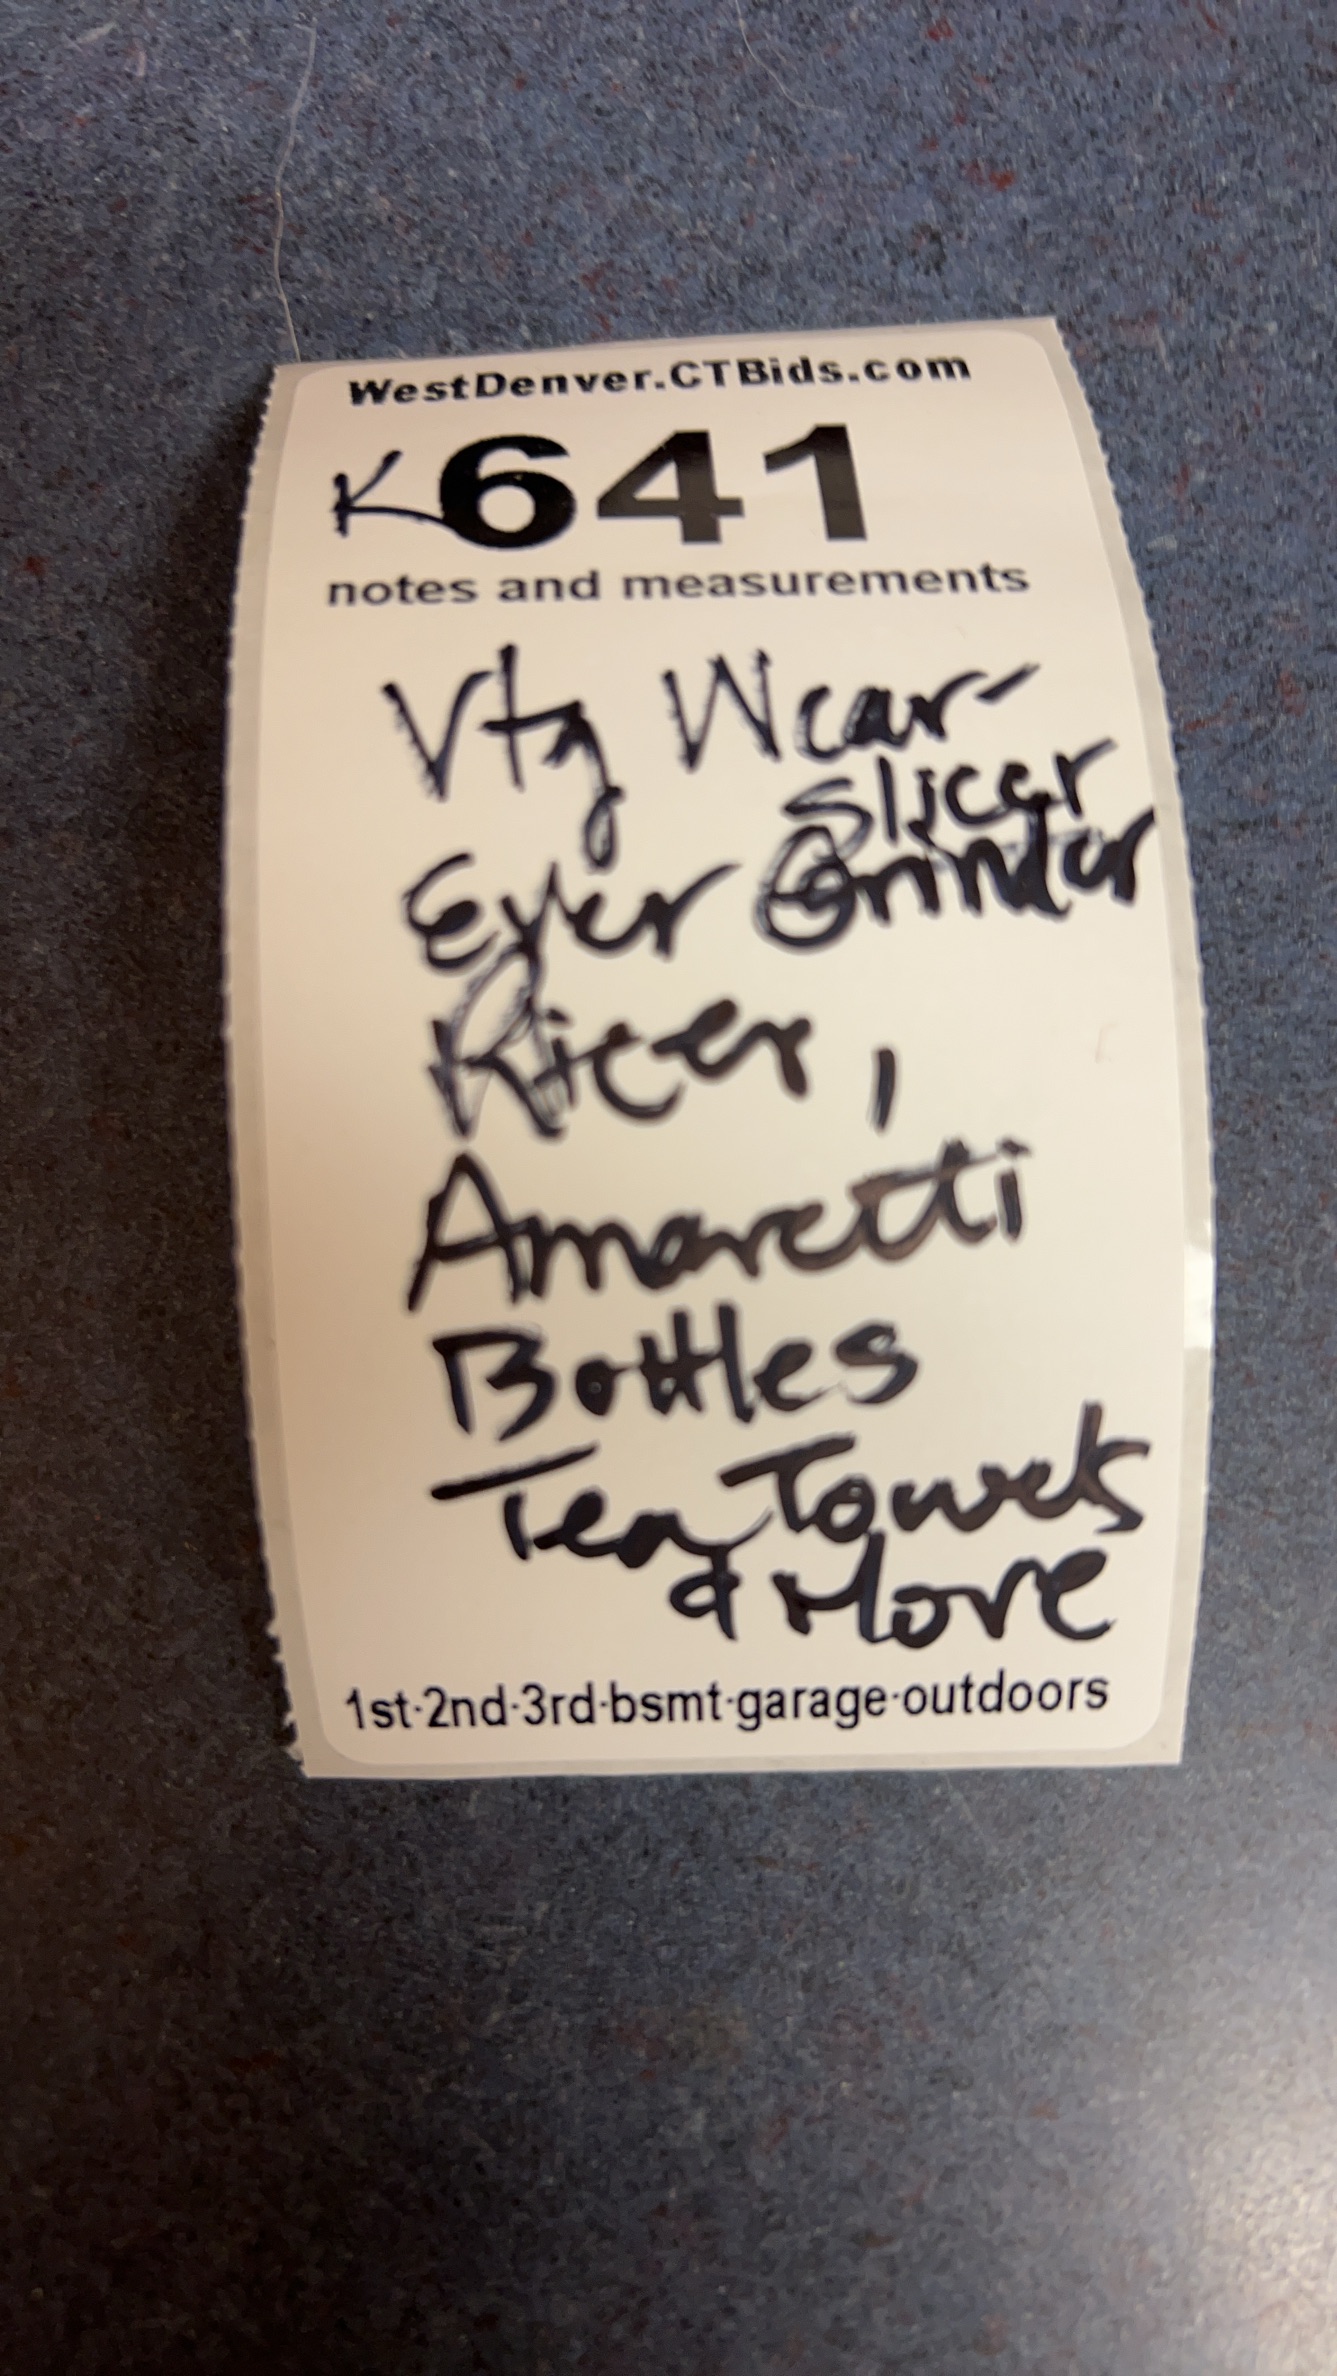 WestDenver.CTBids.com
K641
notes and measurements
Vtg Wear-
Slicer
Ever Grinder
Ricer,
Amaretti
Bottles
Tea Towels
& More
1st·2nd·3rd·bsmt·garage·outdoors